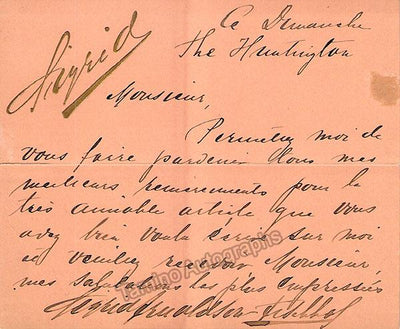 Sigrid
Ce Dimanche
The Huntington
Monsieur,
Permettez moi de
vous faire parvenir tous mes
meilleurs remerciements pour le
très aimable article que vous
avez bien voulu écrire sur moi
et veuillez recevoir, Monsieur,
mes salutations les plus empressées
Sigrid Arnoldson-Fischhof
Tamino Autographs